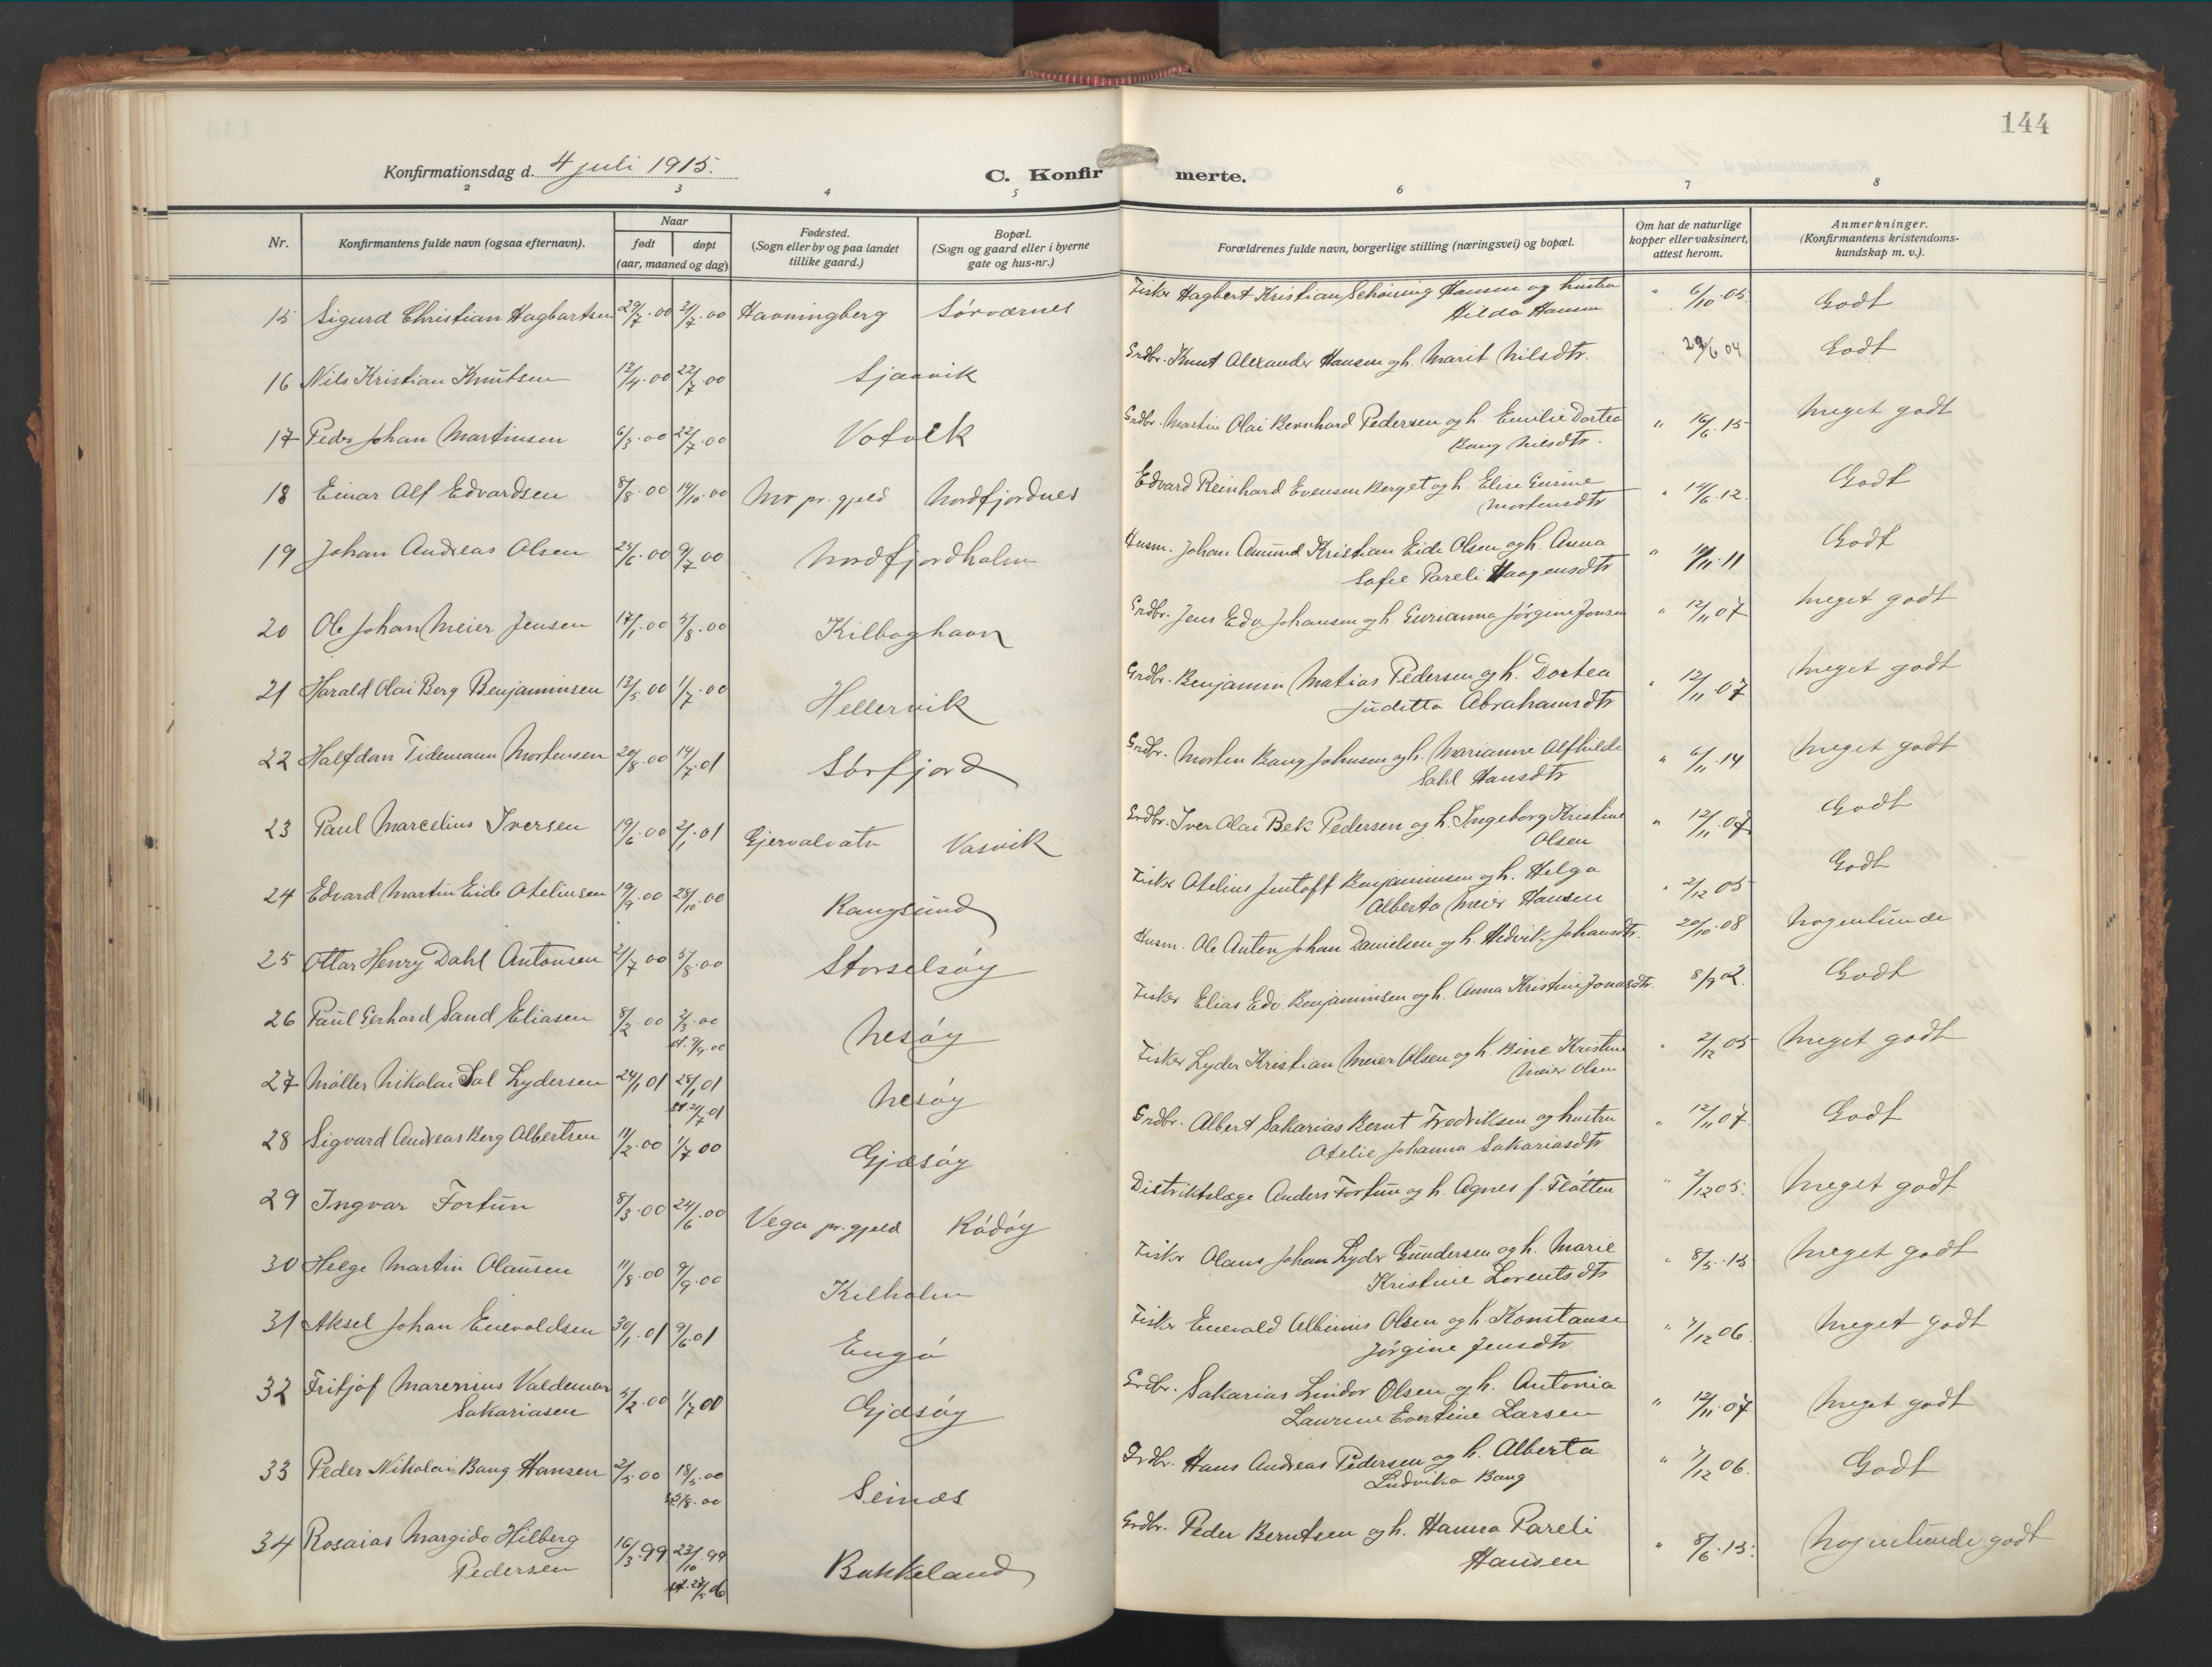 144
Konfirmationsdag d. 4 juli 1915.
C. Konfirmerte.
2 3 4 5 6 7 8
Nr.
Konfirmantens fulde navn (ogsaa efternavn).
Naar
født
døpt
(aar, maaned og dag)
Fødested.
(Sogn eller by og paa landet
tillike gaard.)
Bopæl.
(Sogn og gaard eller i byerne
gate og hus-nr.)
Forældrenes fulde navn, borgerlige stilling (næringsvei) og bopæl.
Om hat de naturlige
kopper eller vaksinert,
attest herom.
Anmerkninger.
(Konfirmantens kristendoms-
kundskap m. v.).
15 Sigurd Christian Hagbartsen 29/7.00 31/7.00 Havningberg Sørværnes Fisker Hagbert Kristian Schøning Hansen og hustru
Hilda Hansen " 6/10.05. Godt
16 Nils Kristian Knutsen 12/4.00 22/7.00 Sjaavik Grdbr. Knut Alexander Hansen og h. Marit Nilsdtr. " 29/6 04 Godt
17 Peder Johan Martinsen 6/3.00 22/7.00 Votvik Grdbr. Martin Olai Bernhard Pedersen og h. Emilie Dortea
Bang Nilsdtr. " 16/6.15 Meget godt
18 Einar Alf Edvardsen 8/8.00 14/10.00 Nr pr. gjeld Nordfjordnes Edvard Reinhard Evensen Berget og h. Elise Gurine
Mortensdtr " 14/6.12. Godt
19 Johan Andreas Olsen 25/6.00 9/7.00 Nordfjordholm Husm. Johan Amund Kristian Eide Olsen og h. Anna
Sofie Pareli Haagensdtr " 11/11.11 Godt
20 Ole Johan Meier Jensen 17/1.00 5/8.00 Kilboghavn Grdbr. Jens Edv. Johansen og h. Gurianna Jørgine Jonsen " 12/11 07 Meget godt
21 Harald Olai Berg Benjaminsen 12/5.00 1/7.00 Hellervik Grdbr. Benjamin Matias Pedersen og h. Dortea
Juditta Abrahamsdtr " 12/11.07 Meget godt
22 Halfdan Tidemann Mortensen 20/8.00 14/7.01 Sørfjord Grdbr. Morten Bang Johnsen og h. Marianne Alfhilde
Dahl Hansdtr " 6/11.14 Meget godt
23 Paul Marcelius Iversen 19/6.00 2/1.01 Gjervalvatn Vasvik Grdbr. Iver Olai Bek Pedersen og h. Ingeborg Kristine
Olsen " 12/11.07 Godt
24 Edvard Martin Eide Otelinsen 19/9.00 28/10.00 Rangsund Fisker Otelius Jentoft Benjaminsen og h. Helga
Alberta Meier Hansen " 2/12 05 Godt
25 Ottar Henry Dahl Antonsen 21/7 00 5/8.00 Storselsøy Husm. Ole Anton Johan Danielsen og h. Hedvik Johansdtr. 20/10.08 Nogenlunde
26 Paul Gerhard Sand Eliasen 8/2.00 2/3.00
st. 9/9.00 Nesøy Fisker Elias Edv. Benjaminsen og h. Anna Kristine Jonasdtr. 8/9 02. Godt
27 Møller Nikolai Dal Lydersen 24/1 01 28/1 01
st. 21/7 01 Nesøy Fisker Lyder Kristian Meier Olsen og h. Bine Kristine
Meier Olsen " 2/12 05 Meget godt
28 Sigvard Andreas Berg Albertsen 11/2.00 1/7 00 Gjæsøy Grdbr. Albert Sakarias Bernt Fredriksen og hustru
Otelie Johanna Sakariasdtr " 12/11 07. Godt
29 Ingvar Fortun 8/3.00 24/6.00 Vega pr. gjeld Rødøy Distriktslæge Anders Fortun og h. Agnes f. Flåtten " 2/12 05. Meget godt
30 Helge Martin Olausen 11/8.00 9/9.00 Kilholm Fisker Olaus Johan Lyder Gundersen og h. Marie
Kristine Lorentsdtr " 8/5.15 Meget godt
31 Aksel Johan Enevoldsen 30/1.01 9/6.01 Engø Fisker Enevald Albinus Olsen og h. Konstanse
Jørgine Jensdtr " 7/12 06. Meget godt
32 Fritjof Marenius Valdemar
Sakariasen 5/2.00 1/7 00 Gjæsøy Grdbr. Sakarias Lindor Olsen og h. Antonia
Laurine Evertine Larsen " 12/11.07 Meget godt
33 Peder Nikolai Bang Hansen 2/5.00 18/5.00
st. 5/8.00 Seinæs Grdbr. Hans Andreas Pedersen og h. Alberta
Ludvika Bang " 7/12 06. Godt
34 Rosaias Margido Hilberg
Pedersen 16/3.99 23/10.99
Bukkeland Grdbr. Peder Berntsen og h. Hanna Pareli
Hansen " 8/6.15. Nogenlunde godt